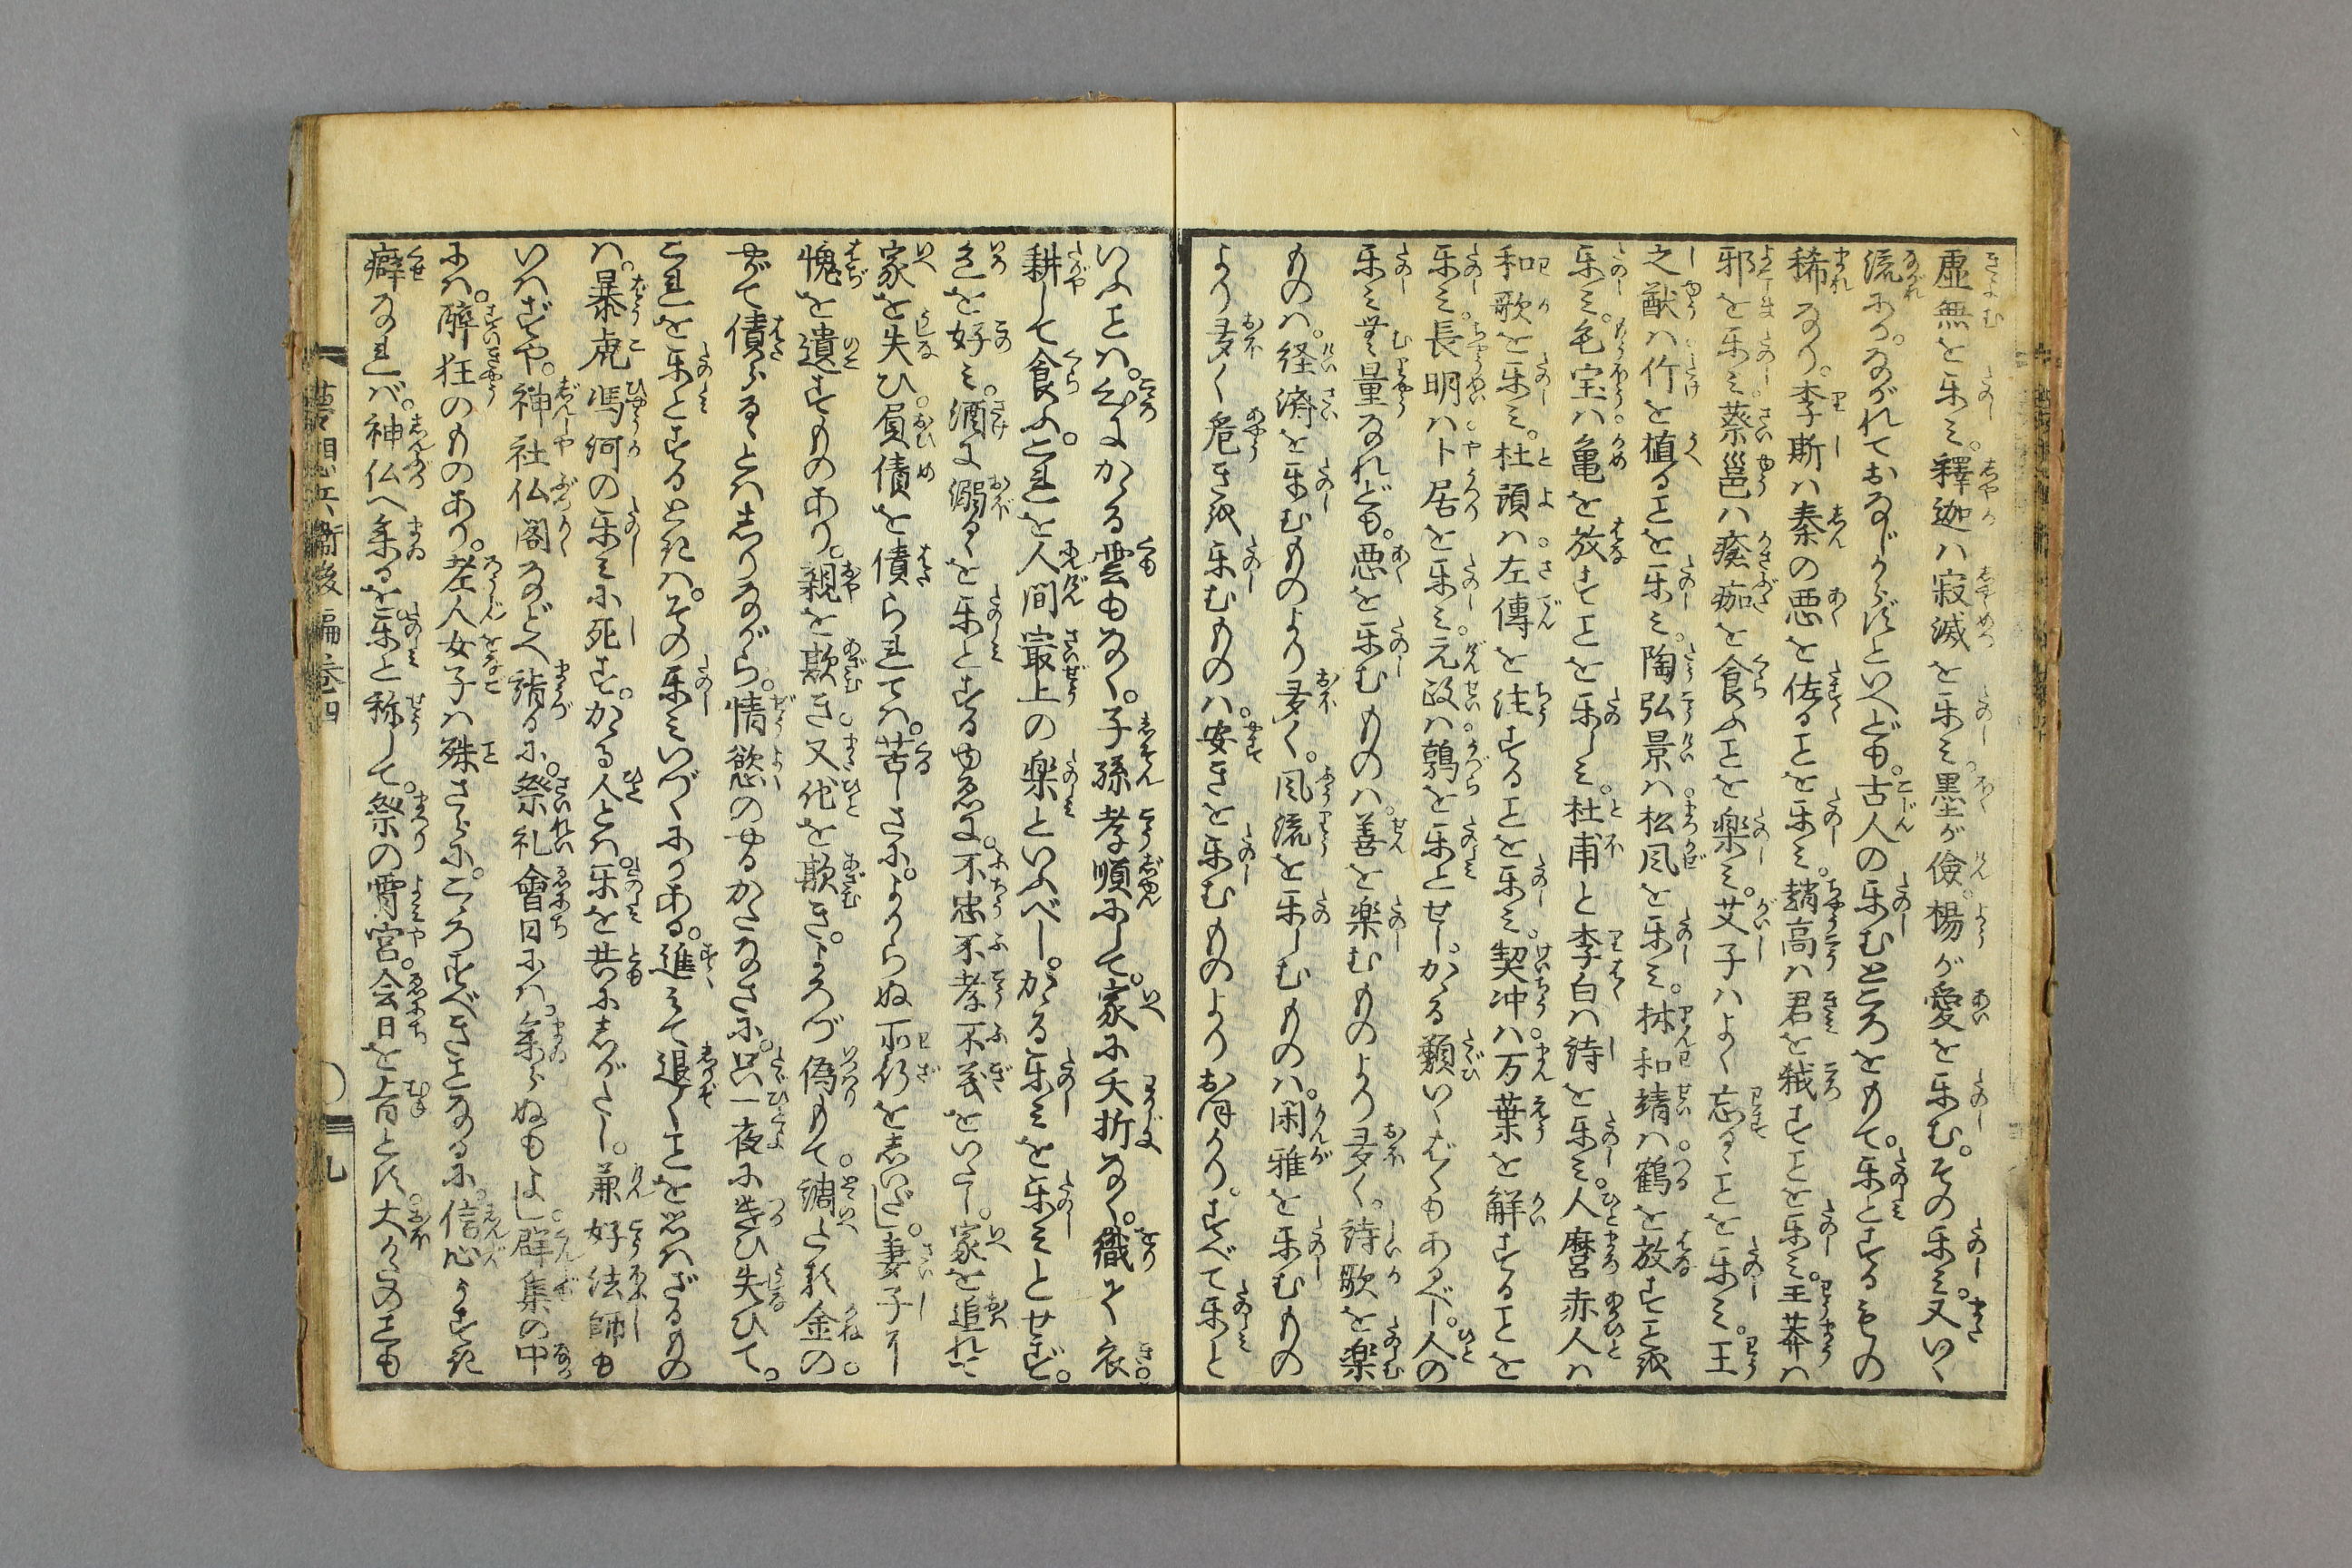 虚無を楽み。釋迦ハ寂滅を楽み。墨が儉。楊が愛を楽む。その楽み。又いく
流か。ながれておなじからずといへども。古人の楽むところをもて。楽とするもの
稀なり。李斯ハ秦の悪を佐ることを楽み。趙高ハ君を弑すことを楽み。王莽ハ
邪を楽み。蔡邕ハ瘡痂を食ふことを楽み。艾子ハよく忘るゝことを楽み。王
之猷ハ竹を植ることを楽み。陶弘景ハ松風を楽み。林和靖ハ鶴を放すことを
楽み。毛宝ハ亀を放すことを楽しみ。杜甫と李白ハ詩を楽み。人麿赤人ハ
和歌を楽み。杜預ハ左傳を注することを楽み。契冲ハ万葉を解することを
楽み。長明ハト居を楽み。元政ハ鶉を楽とせし。かゝる類いくばくもあるべし。人の
楽み無量なれども。悪を楽むものハ。善を楽むものより多く。詩歌を楽
ものハ。経済を楽むものより多く。風流を楽しむものハ。閑雅を楽むもの
より多く。危きを楽むものハ。安きを楽むものよりおほかり。すべて楽と
いふことハ。心にかゝる雲もなく。子孫孝順にして。家に夭折なく。織て衣
耕して食ふ。これを人間最上の楽といふべし。かゝる楽みを楽みとせず。
色を好み。酒に溺るゝを楽とするゆゑに。不忠不孝不義をいたし。家を追れ
家を失ひ。負債を債られてハ。苦しさに。よからぬ所行をしいだし。妻子に
愧を遺すものあり。親を欺き。又他を欺き。よろづ偽もて。調たる金の
やがて債るゝとハしりながら。情慾のやるかたなさに。只一夜に遣ひ失ひて。
これを楽とするときハ。その楽みいづくにかある。進みて退くことを思ハざるもの
ハ。暴虎馮河の楽みに死す。かゝる人とハ楽を共にしがたし。兼好法師も
いハずや。神社仏閣などへ詣るに。祭礼會日にハ。参らぬもよし。群集の中
にハ。醉狂のものあり。老人女子ハ殊さらに。こゝろすべきことなるに。信心うすき
癖なれバ。神仏へ参るを楽と称して。祭の宵宮。会日を上首とし。大かたのことも
夢想兵衛後編巻四
九